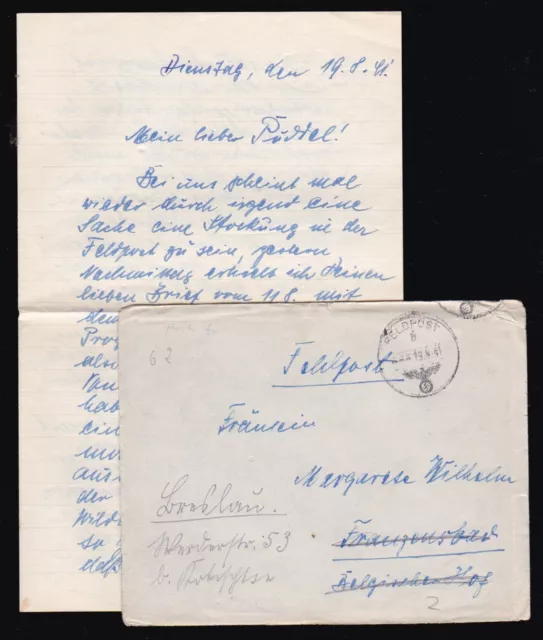 Dienstag, den 19.8.41.
Mein lieber Püddel!
Bei uns scheint mal
wieder durch irgend eine
Sache eine Stockung in der
Feldpost zu sein, gestern
Nachmittag erhielt ich Deinen
lieben Brief vom 11.8. mit
dem
also
hab
ein
aus
der
so
daß
62
FELDPOST
b
19.8.41
Feldpost
Fräulein
Margarete Wilhelm
Franzensbad
Belgischer Hof
Breslau.
Werderstr. 53
b.
2